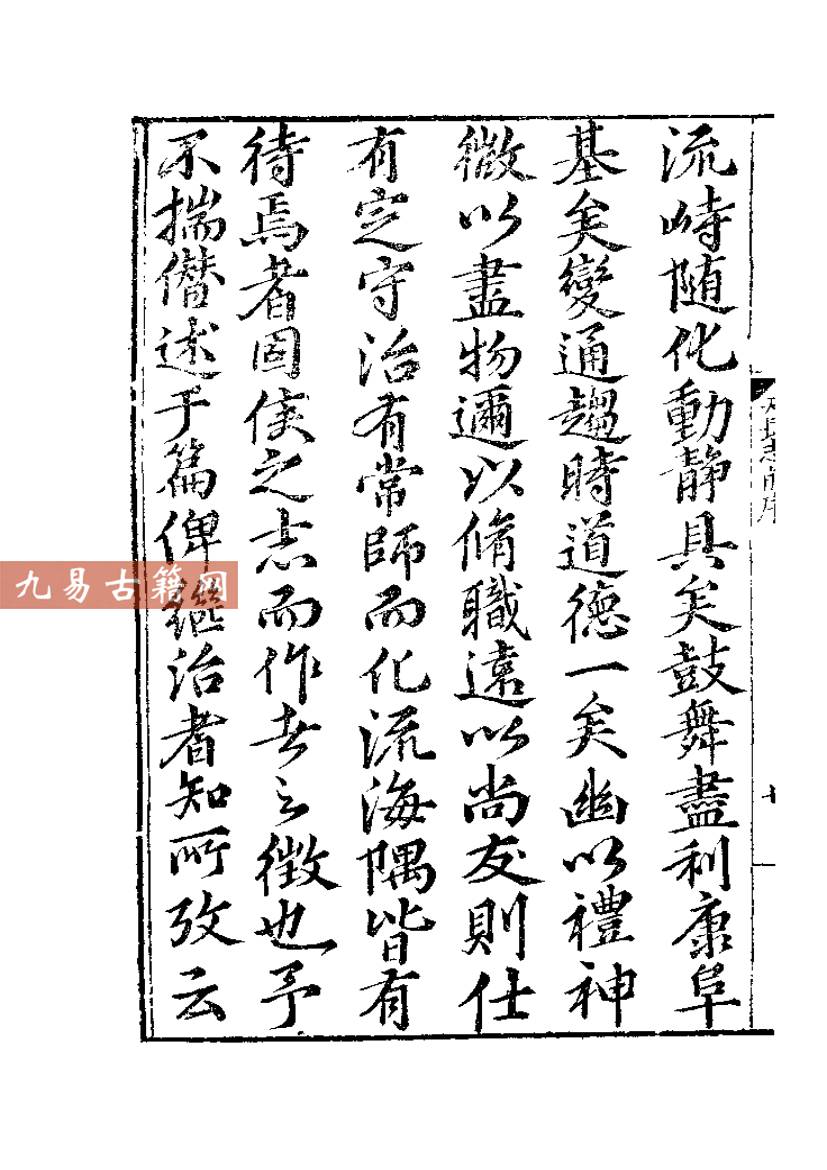 流峙随化動静具矣鼓舞盡利康阜
基矣變通趨時道德一矣幽以禮神
微以盡物邇以脩職遠以尚友則仕
有定守治有常師而化流海隅皆有
待焉者固侯之志而作者之徴也予
不揣僭述于篇俾繼治者知所攷云
九易古籍网